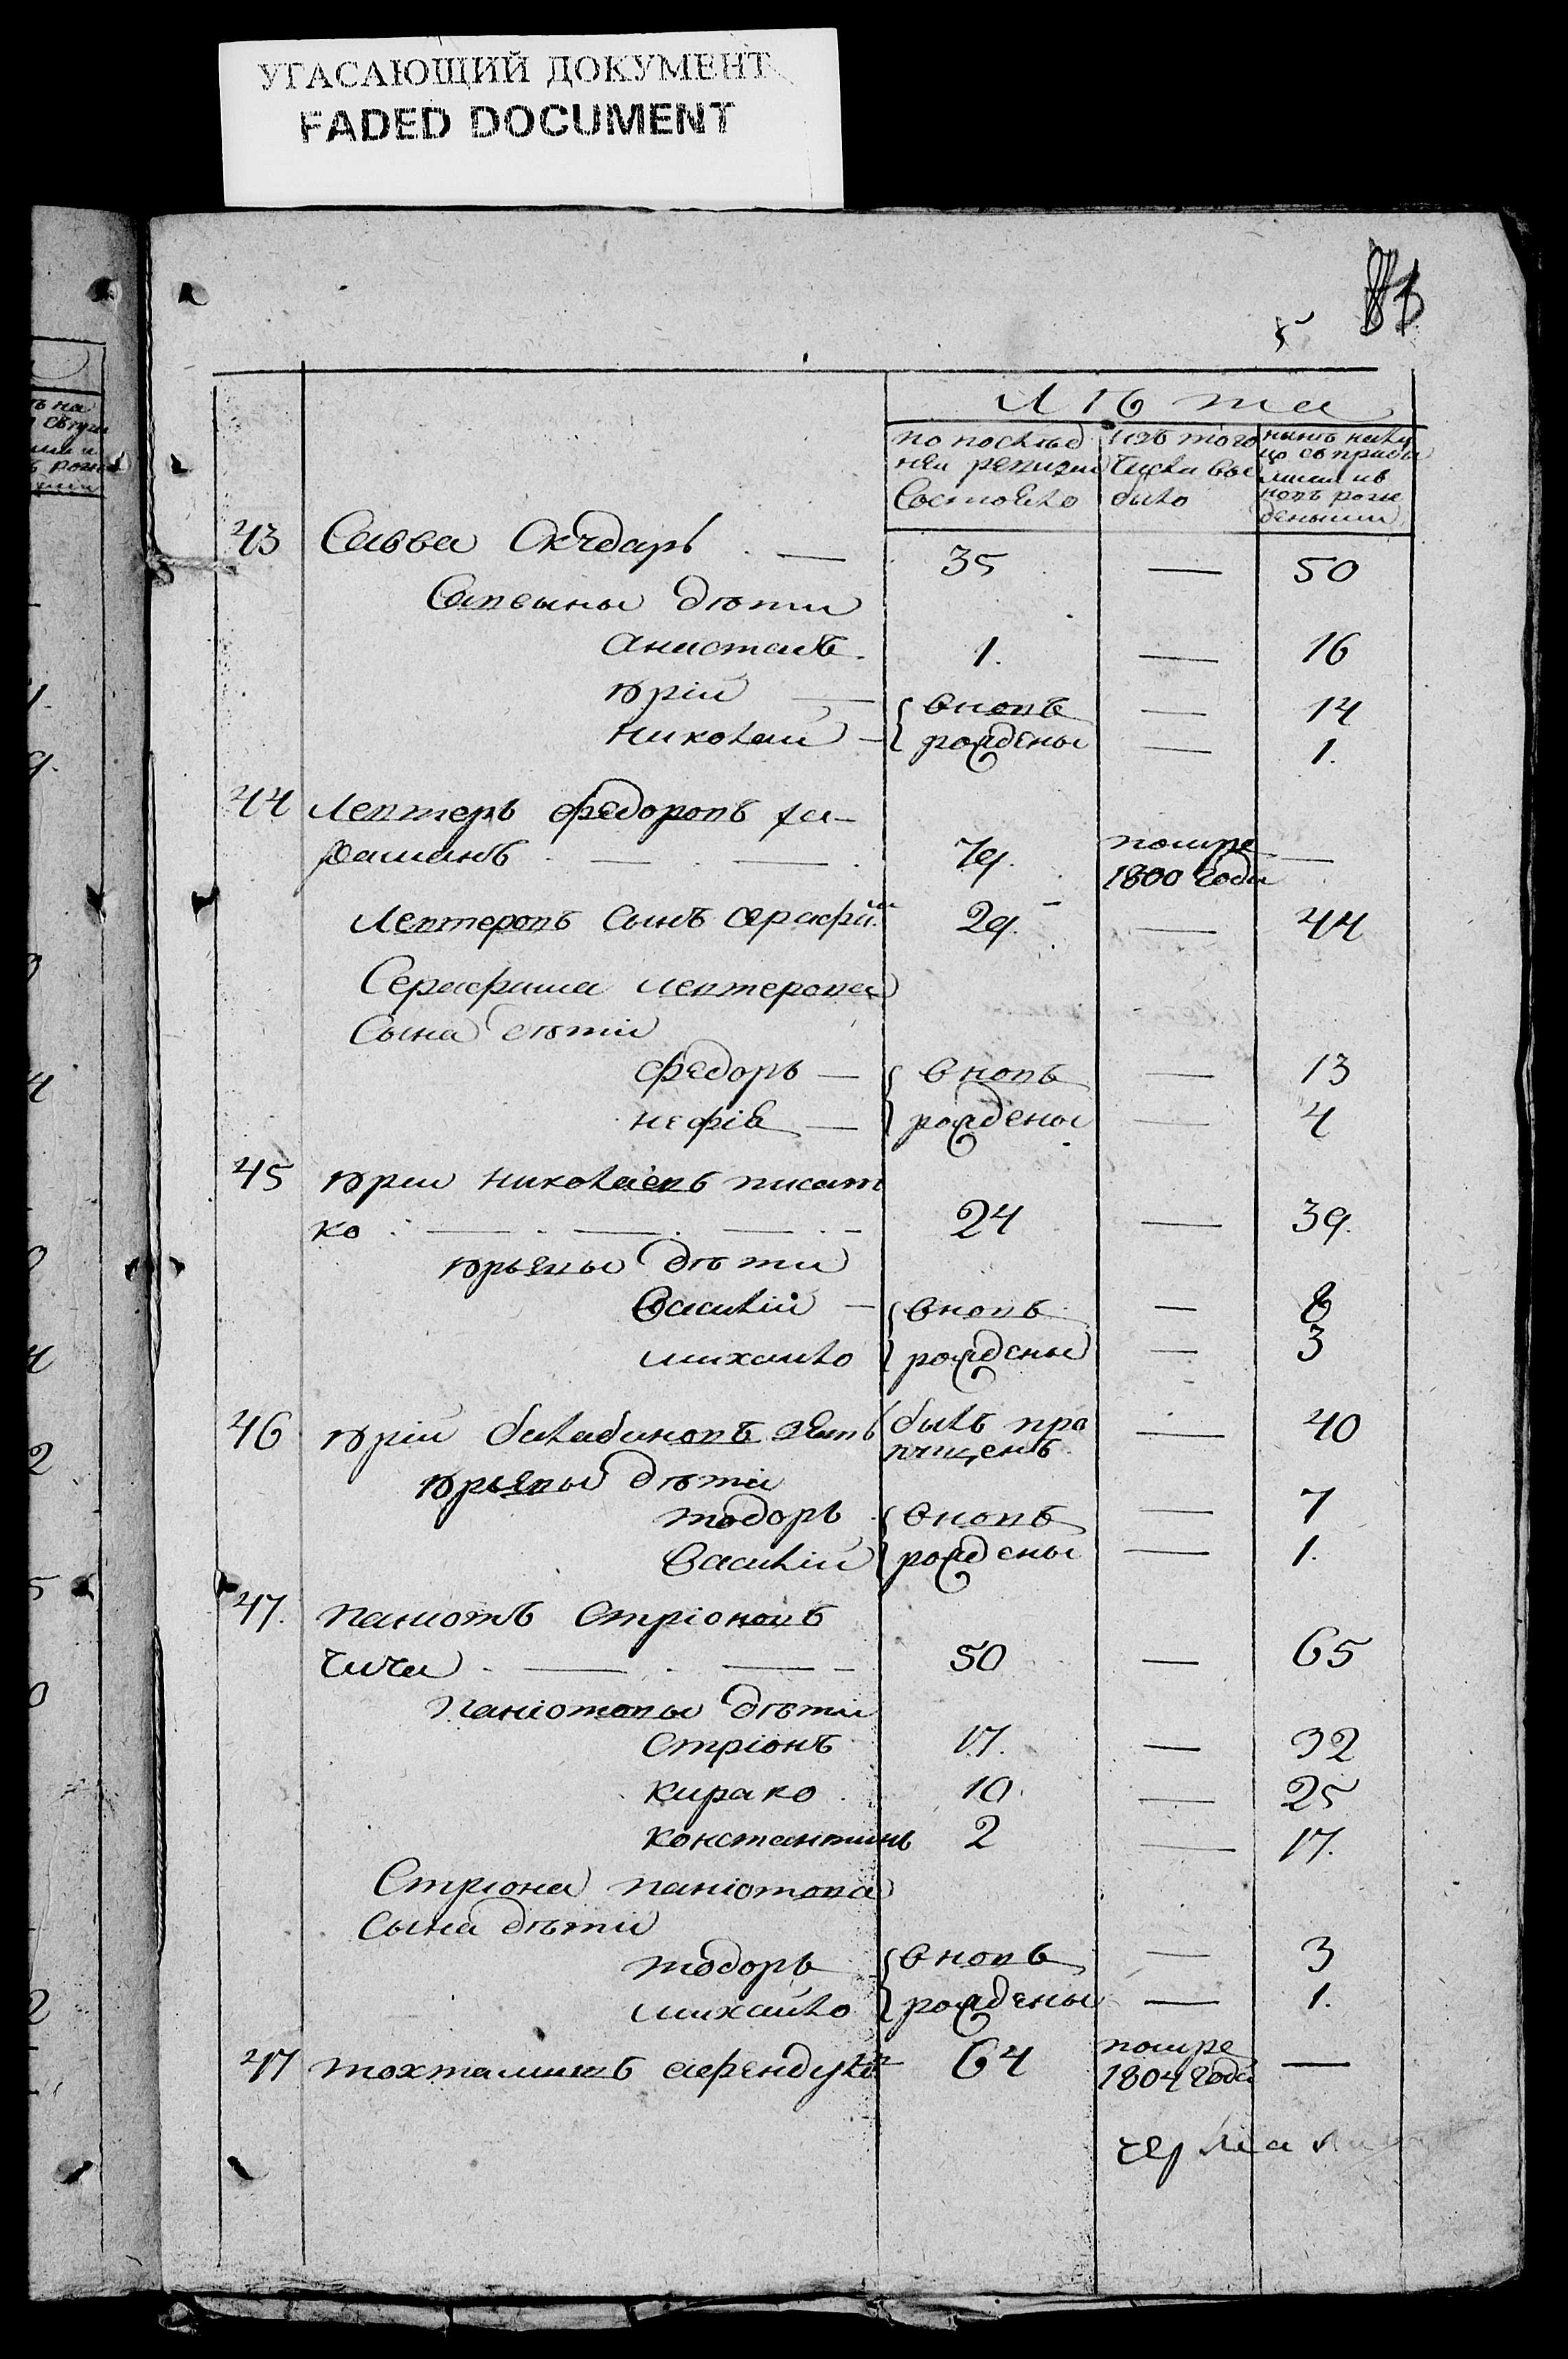 УГАСАЮЩИЙ ДОКУМЕНТ
FADED DOCUMENT
5
Лѣта
по послѣд
ней ревизии
состояло
изъ того
числа вы
было
43 Савва — 35 — 50
Саввины дѣти
Анистасъ 1. — 16
юрій — вновь — 14
николай — рождены — 1.
44 Лефтеръ федоровъ ха-
— — 79. помре 1800 года —
Лефтеровъ сынъ серафи 29. — 44
Серафима лефтерова
сына дѣти
федоръ — вновь — 13
— рождены — 4
45 юрии николаевъ писат
ко — — — 24 — 39.
юрьевы дѣти
василій — вновь — 8
михайло рождены — 3
46 юрій былъ про — 40
пущенъ
юрьевы дѣти
тодоръ вновь — 7
василій рождены — 1.
47. паніотъ стріоновъ
чича — — 50 — 65
паніотовы дѣти
стріонъ 17. — 32
кирако 10. — 25
константинъ 2 — 17.
Стріона паніотова
сына дѣти
тодоръ вновь — 3
михайло рождены — 1.
47 64 помре
1804 года —